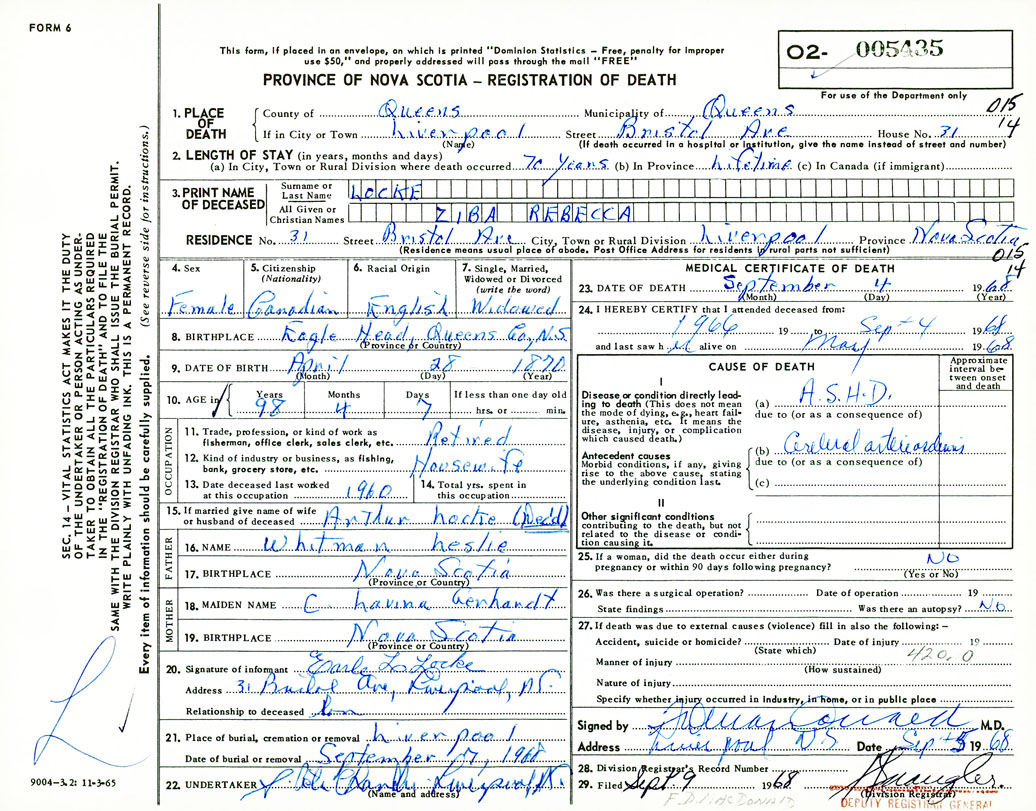 FORM 6
This form, if placed in an envelope, on which is printed "Dominion Statistics – Free, penalty for improper
use $50," and properly addressed will pass through the mail "FREE"
PROVINCE OF NOVA SCOTIA – REGISTRATION OF DEATH
O2- 005435
For use of the Department only
015
14
1. PLACE OF DEATH County of Queens Municipality of Queens
If in City or Town Liverpool Street Bristol Ave House No. 31
(Name) (If death occurred in a hospital or institution, give the name instead of street and number)
2. LENGTH OF STAY (in years, months and days)
(a) In City, Town or Rural Division where death occurred 70 years (b) In Province Lifetime (c) In Canada (if immigrant)
3. PRINT NAME OF DECEASED Surname or Last Name LOCKE
All Given or Christian Names ZIBA REBECCA
RESIDENCE No. 31 Street Bristol Ave City, Town or Rural Division Liverpool Province Nova Scotia
(Residence means usual place of abode. Post Office Address for residents in rural parts not sufficient)
015
14
4. Sex 5. Citizenship (Nationality) 6. Racial Origin 7. Single, Married, Widowed or Divorced (write the word)
Female Canadian English Widowed
8. BIRTHPLACE Eagle Head, Queens Co, N.S
(Province or Country)
9. DATE OF BIRTH April 28 1870
(Month) (Day) (Year)
10. AGE in Years Months Days If less than one day old
98 4 7 hrs. or min.
OCCUPATION
11. Trade, profession, or kind of work as fisherman, office clerk, sales clerk, etc. Retired
12. Kind of industry or business, as fishing, bank, grocery store, etc. Housewife
13. Date deceased last worked at this occupation 1960 14. Total yrs. spent in this occupation
15. If married give name of wife or husband of deceased Arthur Locke (Dec'd)
FATHER
16. NAME Whitman Leslie
17. BIRTHPLACE Nova Scotia
(Province or Country)
MOTHER
18. MAIDEN NAME C. Lavina Gerhardt
19. BIRTHPLACE Nova Scotia
(Province or Country)
20. Signature of informant Earle L. Locke
Address 31 Bristol Ave, Liverpool, N.S.
Relationship to deceased Son
21. Place of burial, cremation or removal Liverpool
Date of burial or removal September 7, 1968
22. UNDERTAKER Liverpool N.S.
(Name and address)
MEDICAL CERTIFICATE OF DEATH
23. DATE OF DEATH September 4 1968
(Month) (Day) (Year)
24. I HEREBY CERTIFY that I attended deceased from:
1966 19 to Sept 4 1968
and last saw h alive on May 1968.
CAUSE OF DEATH
Approximate interval between onset and death
I
Disease or condition directly leading to death (This does not mean the mode of dying, e.g., heart failure, asthenia, etc. It means the disease, injury, or complication which caused death.)
(a) A.S.H.D.
due to (or as a consequence of)
Antecedent causes
Morbid conditions, if any, giving rise to the above cause, stating the underlying condition last.
(b) Cerebral
due to (or as a consequence of)
(c)
II
Other significant conditions
contributing to the death, but not related to the disease or condition causing it.
25. If a woman, did the death occur either during pregnancy or within 90 days following pregnancy? NO
(Yes or No)
26. Was there a surgical operation? Date of operation 19
State findings Was there an autopsy? No
27. If death was due to external causes (violence) fill in also the following: –
Accident, suicide or homicide? Date of injury 19
(State which) 420.0
Manner of injury
(How sustained)
Nature of injury
Specify whether injury occurred in Industry, in home, or in public place
Signed by M.D.
Address Liverpool NS Date Sept 5 1968
28. Division Registrar's Record Number
29. Filed Sept 9 1968
(Division Registrar)
DEPUTY REGISTRAR GENERAL
SEC. 14 – VITAL STATISTICS ACT MAKES IT THE DUTY
OF THE UNDERTAKER OR PERSON ACTING AS UNDER-
TAKER TO OBTAIN ALL THE PARTICULARS REQUIRED
IN THE "REGISTRATION OF DEATH" AND TO FILE THE
SAME WITH THE DIVISION REGISTRAR WHO SHALL ISSUE THE BURIAL PERMIT.
WRITE PLAINLY WITH UNFADING INK. THIS IS A PERMANENT RECORD.
Every item of information should be carefully supplied. (See reverse side for instructions.)
9004–3.2: 11-3-65